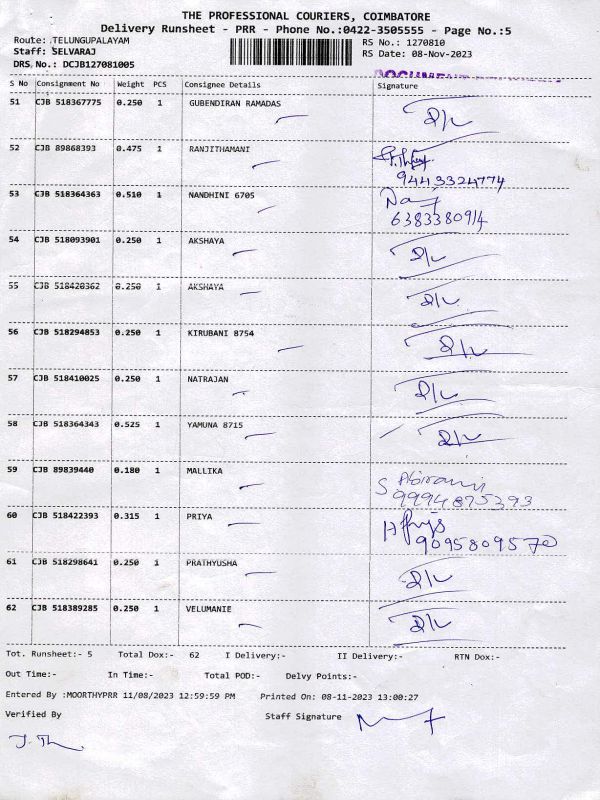 THE PROFESSIONAL COURIERS, COIMBATORE
Delivery Runsheet - PRR - Phone No.:0422-3505555 - Page No.:5
Route: TELUNGUPALAYAM RS No.: 1270810
Staff: SELVARAJ RS Date: 08-Nov-2023
DRS No.: DCJB127081005
S No Consignment No Weight PCS Consignee Details Signature
51 CJB 518367775 0.250 1 GUBENDIRAN RAMADAS
52 CJB 89868393 0.475 1 RANJITHAMANI
9443324774
53 CJB 518364363 0.510 1 NANDHINI 6705
6383380914
54 CJB 518093901 0.250 1 AKSHAYA
55 CJB 518420362 0.250 1 AKSHAYA
56 CJB 518294853 0.250 1 KIRUBANI 8754
57 CJB 518410025 0.250 1 NATRAJAN
58 CJB 518364343 0.525 1 YAMUNA 8715
59 CJB 89839440 0.180 1 MALLIKA
9994895393
60 CJB 518422393 0.315 1 PRIYA
9095809570
61 CJB 518298641 0.250 1 PRATHYUSHA
62 CJB 518389285 0.250 1 VELUMANIE
Tot. Runsheet:- 5 Total Dox:- 62 I Delivery:- II Delivery:- RTN Dox:-
Out Time:- In Time:- Total POD:- Delvy Points:-
Entered By :MOORTHYPRR 11/08/2023 12:59:59 PM Printed On: 08-11-2023 13:00:27
Verified By Staff Signature